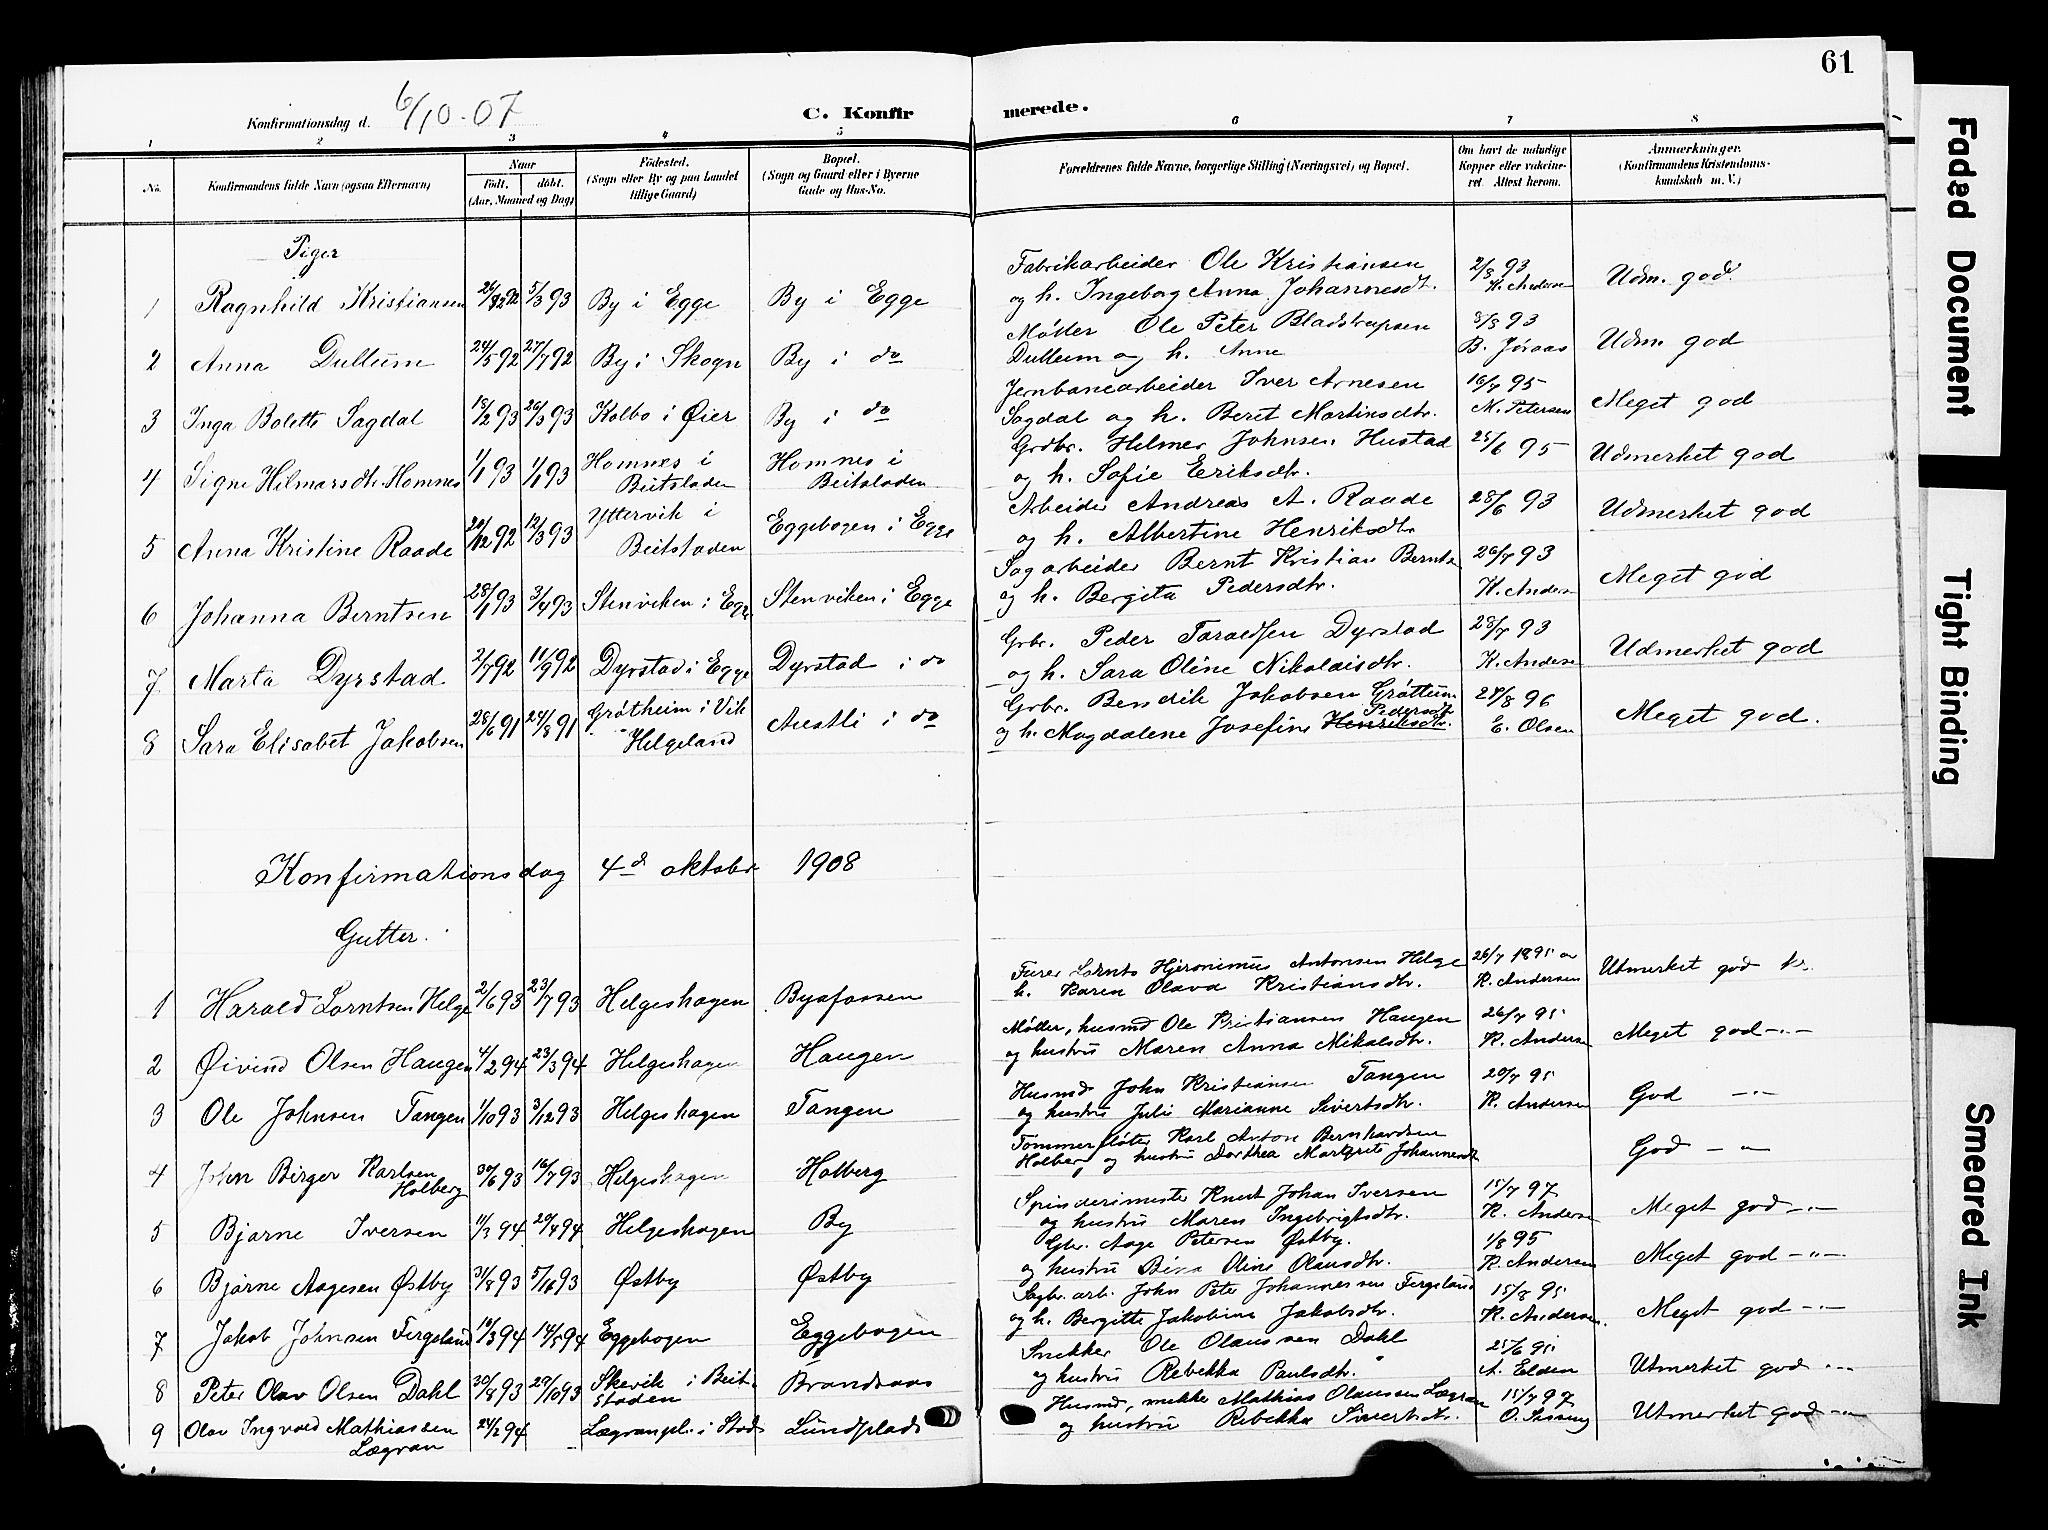 61
Konfirmationsdag d. 6/10-07
C. Konfirmerede.
1 2 3 4 5 6 7 8
No. Konfirmandens fulde Navn (ogsaa Efternavn) Naar født, døbt. (Aar, Maaned og Dag) Fødested. (Sogn eller By og paa Landet tillige Gaard) Bopæl. (Sogn og Gaard eller i Byerne Gade og Hus-No. Forældrenes fulde Navne, borgerlige Stilling (Næringsvei) og Bopæl. Om havt de naturlige Kopper eller vakcineret. Attest herom. Anmærkninger. (Konfirmandens Kristendomskundskab m. V.)
Piger
1 Ragnhild Kristiansen 5/3 93 By i Egge By i Egge Fabrikarbeider Ole Kristiansen og h. Ingeborg Anna Johannesdt. 2/8 93 Udm. god.
2 Anna Dullum 24/5 92 27/7 92 By i Skogn By i do Møller Ole Peter Dullum og h. Anne 8/8 93 B. Jøraas Udm. god
3 Inga Bolette Sagdal 18/2 93 26/3 93 Kolbo i Øier By i do Jernbanearbeider Iver Arnesen Sagdal og h. Beret Martinsdtr. 16/7 95 M. Petersen Meget god
4 Signe Hilmarsdtr. Homnes 1/1 93 93 Homnes i Beitstaden Homnes i Beitstaden Grdbr. Hilmer Johnsen Hustad og h. Sofie Eriksdtr. 25/6 95 Udmerket god
5 Anna Kristine Raade 20/12 92 12/3 93 Yttervik i Beitstaden Eggebogen i Egge Arbeider Andreas A. Raade og h. Albertine Henriksdtr 28/6 93 Udmerket god
6 Johanna Berntsen 28/1 93 3/4 93 Stenviken i Egge Stenviken i Egge Sagarbeider Bernt Kristian Berntsn og h. Bergita Pedersdtr. 26/7 93 K. Anders Meget god
7 Marta Dyrstad 2/7 92 11/9 92 Dyrstad i Egge Dyrstad i do Grbr. Peder Dyrstad og h. Sara Oline Nikolaisdtr. 28/7 93 K. Anderse Udmerket god
8 Sara Elisabet Jakobsen 28/6 91 24/8 91 Grøtheim i Vik Helgeland Austli i do Grbr. Bendik Jakobsen Grøttum og h. Magdalene Josefine Henriksdtr. Pedersdtr 96 E. Olsen Meget god.
Konfirmationsdag 4de oktober 1908
Gutter.
1 Harald Lorntsen Helge 2/6 93 23/7 93 Helgeshagen Byafossen Furer Lornts Hjeronimus Antonsen Helge h. Karen Olava Kristiansdtr. 26/7 1895 K. Andersen Utmerket god kr.
2 Øivind Olsen Haugen 4/2 94 23/3 94 Helgeshagen Haugen Møller, husmd Ole Kristiansen Haugen og hustru Maren Anna Mikalsdtr. 26/7 95 K. Anderse Meget god -"-
3 Ole Johnsen Tangen 1/10 93 3/12 93 Helgeshagen Tangen Husmd John Kristiansen Tangen og hustru Julie Marianne Sivertsdtr. 20/7 95 K. Andersen God -"-
4 John Birger Karlsen Holberg 30/6 93 16/7 93 Helgeshagen Holberg Tømmerfløter Karl Anton Bernhardsen Holberg og hustru Dorthea Margrete Johannesdt God -"-
5 Bjarne Iversen 11/3 94 20/4 94 Helgeshagen By Spinderimester Knut Johan Iversen og hustru Maren Ingebrigtsdtr. 15/7 97 K. Anderse Meget god -"-
6 Bjarne Aagesen Østby 31/8 93 93 Østby Østby Gbr. Aage Petersen Østby. og hustru Oline Olausdtr. 1/8 95 K. Andersen Meget god -"-
7 Jakob Johnsen Fergeland 94 94 Eggebogen Eggebogen Sagbr. arb. John Peter Johannessen Fergeland og h. Bergitte Jakobine Jakobsdtr. 15/8 95 K. Andersen. Meget god -"-
8 Peter Olav Olsen Dahl 30/8 93 29/10 93 Skevik i Beitstaden Brandsaas Snekker Ole Olaussen Dahl og hustru Rebekka Paulsdtr. 25/6 95 A. Elden Utmerket god -"-
9 Olav Ingvald Mathiassen Lægran 24/2 94 Lægranpl. i Stod Lundplads Husmd, Mathias Olaussen Lægran og hustru Rebekka Sivertsdtr. 15/7 97 Utmerket god -"-
Faded Document
Tight Binding
Smeared Ink